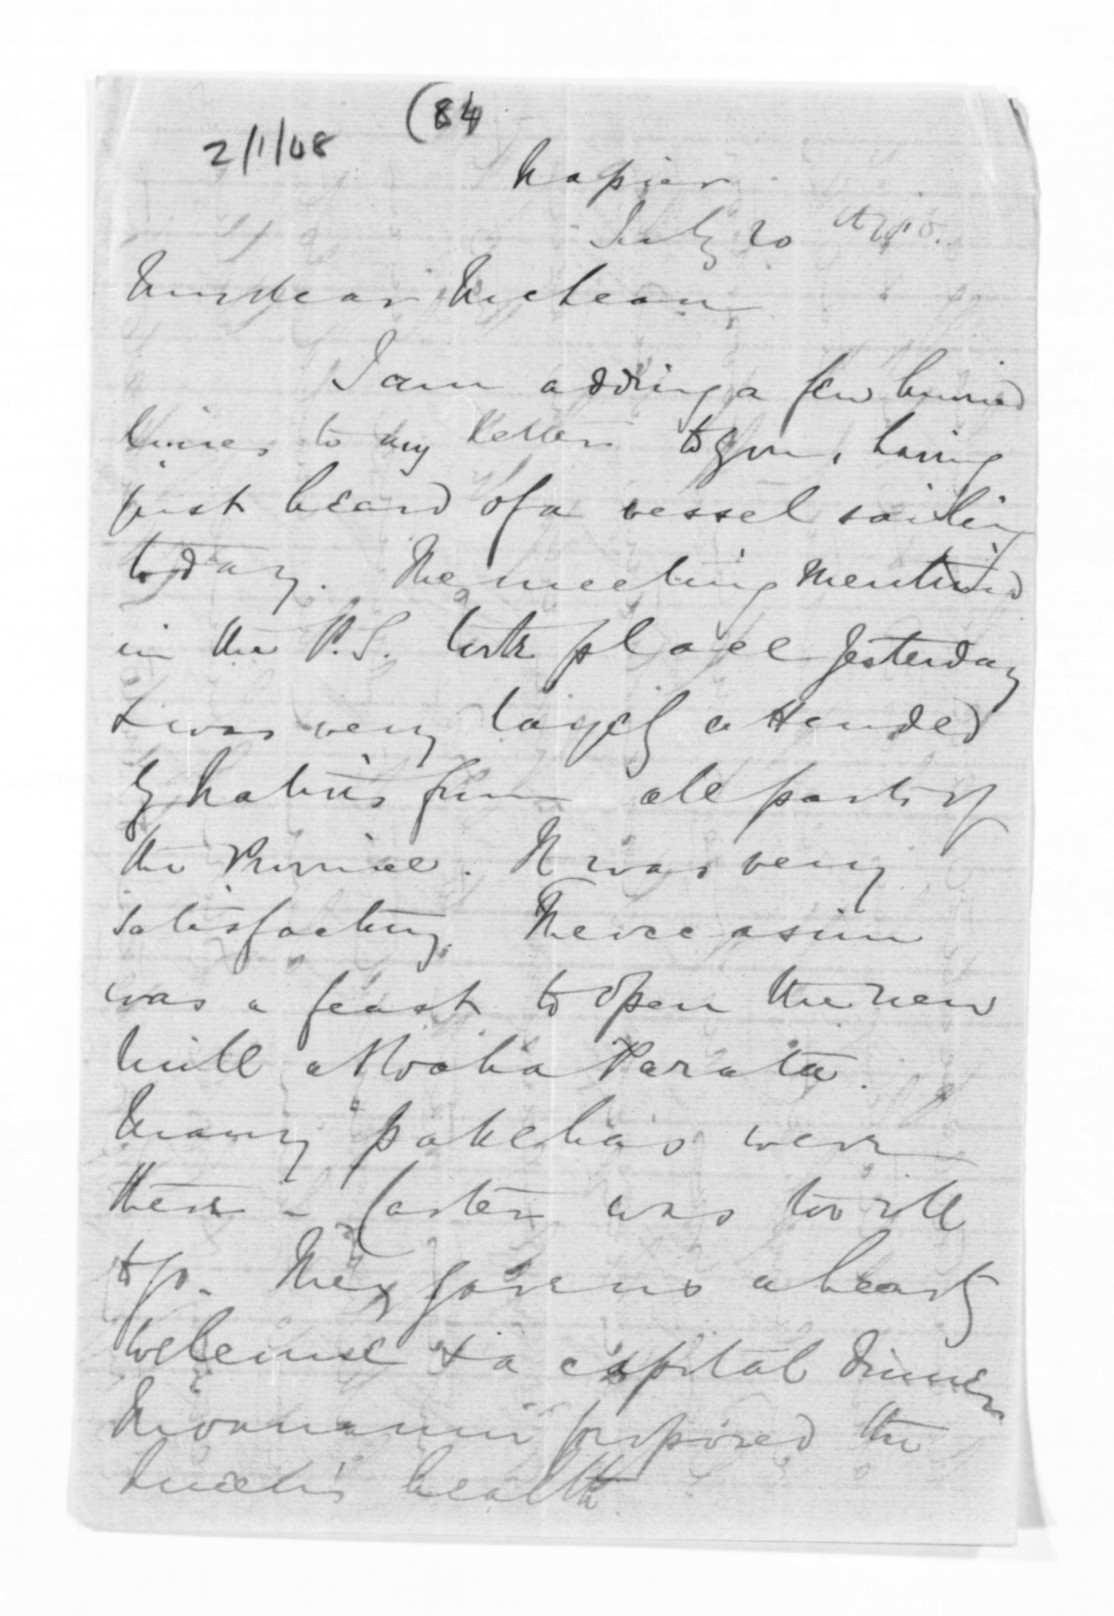 (84)
2/1/08
Napier
July 20
My dear McLean
I am adding a few hurried
lines to my letter to you, having
just heard of a vessel sailing
today. The meeting mentioned
in the P.S. took place yesterday
& was very largely attended
by Natives from all parts of
the Province. It was very
satisfactory. The occasion
was a feast to open the new
mill at
Many pakehas were
there - Carter was too ill
to go. They gave us a hearty
welcome & a capital dinner
proposed the
Queen's health